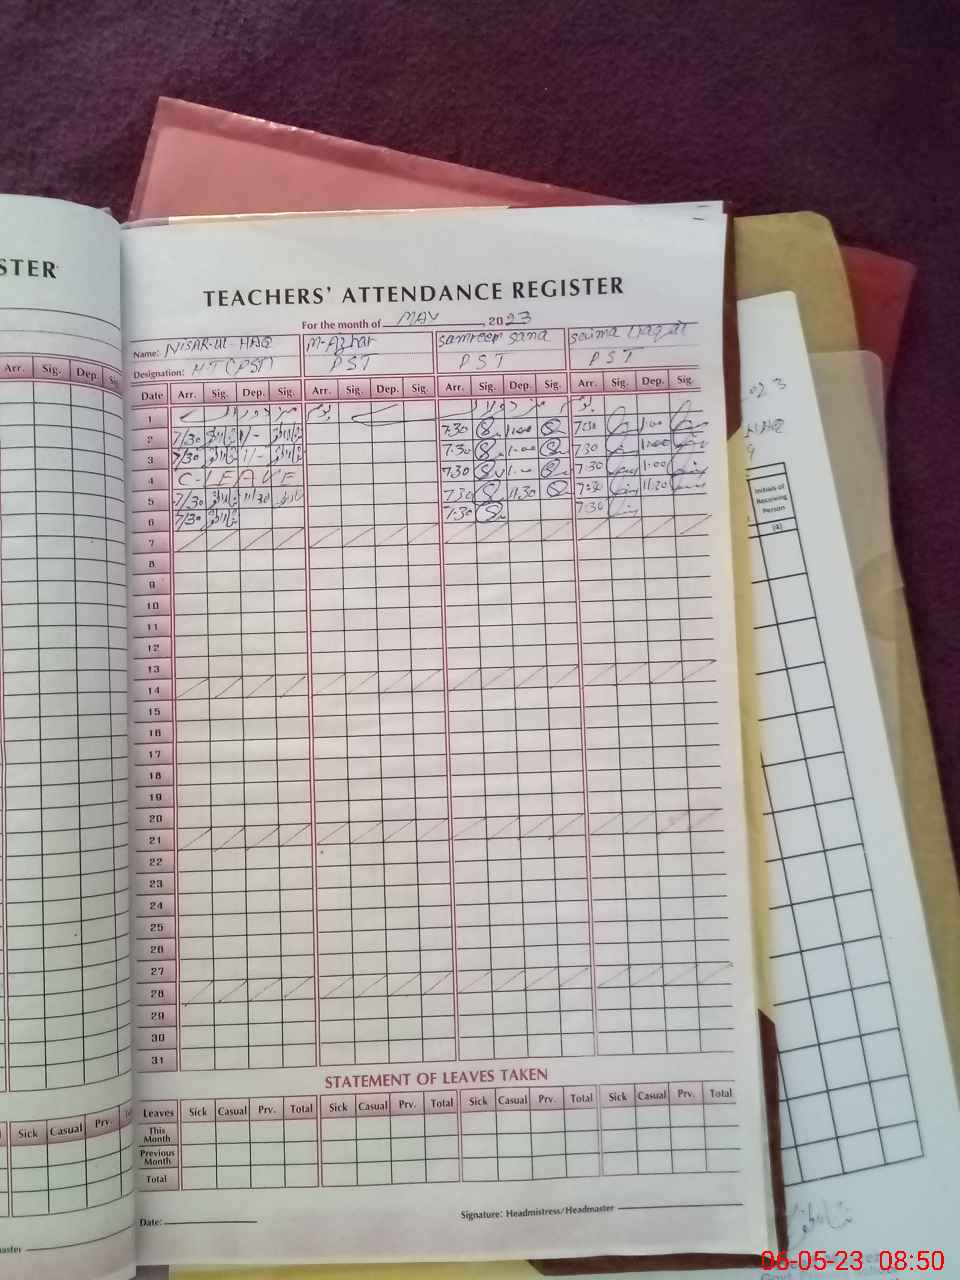 STER
TEACHERS' ATTENDANCE REGISTER
For the month of MAY, 2023
Name: NISAR-UL-HAQ M-Azhar Samreen Sana
Designation: HT (PST) PST PST PST
Arr. Sig. Dep.
Date Arr. Sig. Dep. Sig. Arr. Sig. Dep. Sig. Arr. Sig. Dep. Sig. Arr. Sig. Dep. Sig.
1 یوم مزدوراں یوم
2 7/30 1/- 7:30 1:00 7:30 1:00
3 7/30 1/- 7:30 1:00 7:30 1:00
4 C-LEAVE 7:30 7:30 1:00
5 7/30 11/30 7:30 11:30 7:30 11:30
6 7/30 7:30 7:30
7
8
9
10
11
12
13
14
15
16
17
18
19
20
21
22
23
24
25
26
27
28
29
30
31
STATEMENT OF LEAVES TAKEN
Leaves Sick Casual Prv. Total Sick Casual Prv. Total Sick Casual Prv. Total Sick Casual Prv. Total
This Month
Previous Month
Total
Date:
Signature: Headmistress/Headmaster
Sick Casual Prv.
Initials of
Receiving
Person
(4)
06-05-23 08:50